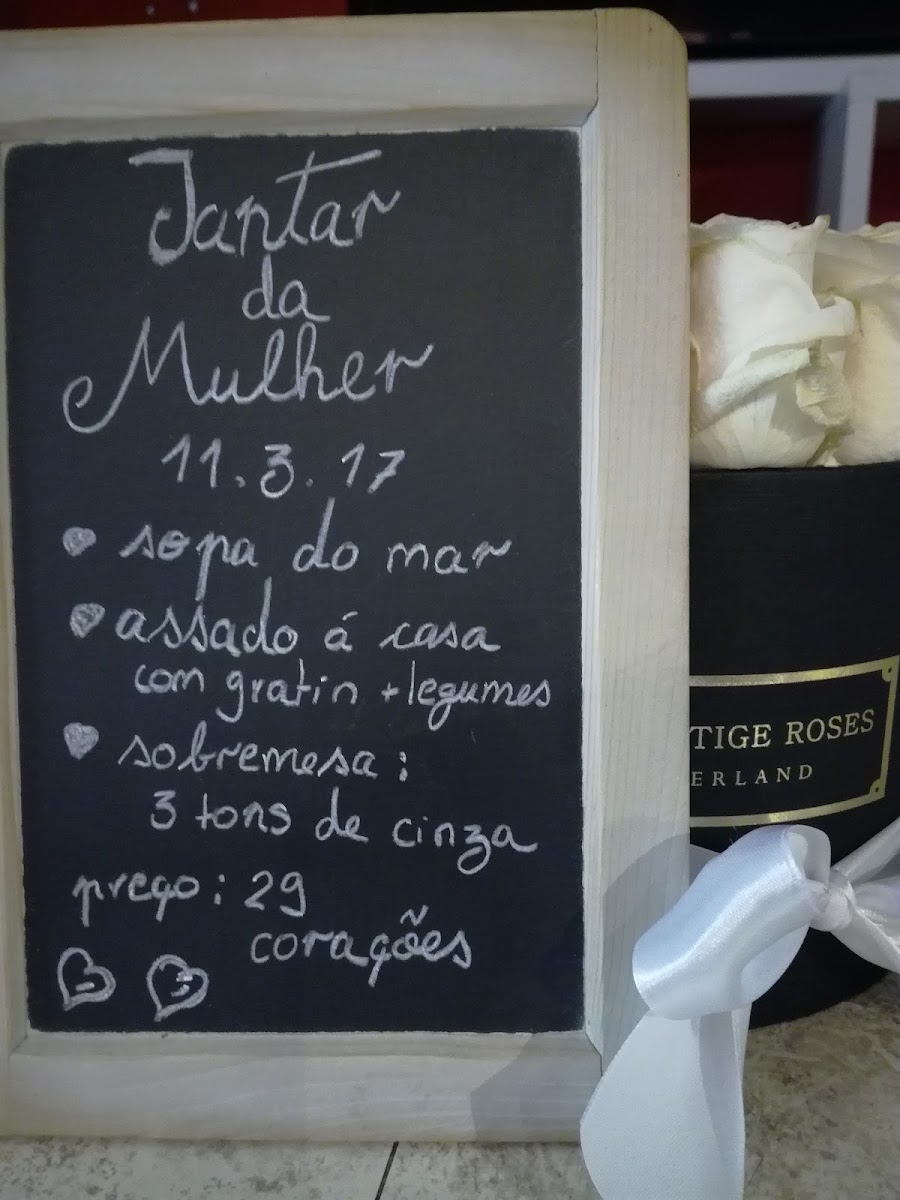 Jantar
da
Mulher
11.3.17
sopa do mar
assado á casa
com gratin + legumes
sobremesa:
3 tons de cinza
preço: 29
corações
TIGE ROSES
ERLAND